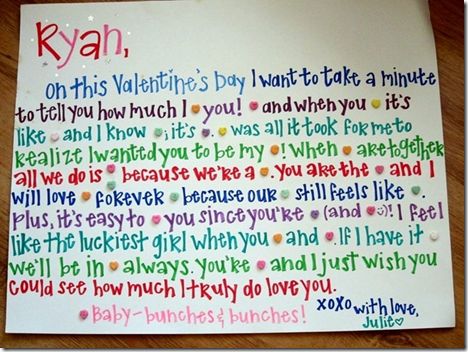 Ryan,
On this Valentine's Day I want to take a minute
to tell you how much I you! and when you it's
like and I know, it's was all it took for me to
realize I wanted you to be my ! When are together
all we do is because we're a . You are the and I
will love forever because our still feels like .
Plus, it's easy to you since you're (and )! I feel
like the luckiest girl when you and . If I have it
we'll be in always. You're and I just wish you
could see how much I truly do love you.
Baby-bunches & bunches!
xoxo with love,
Julie